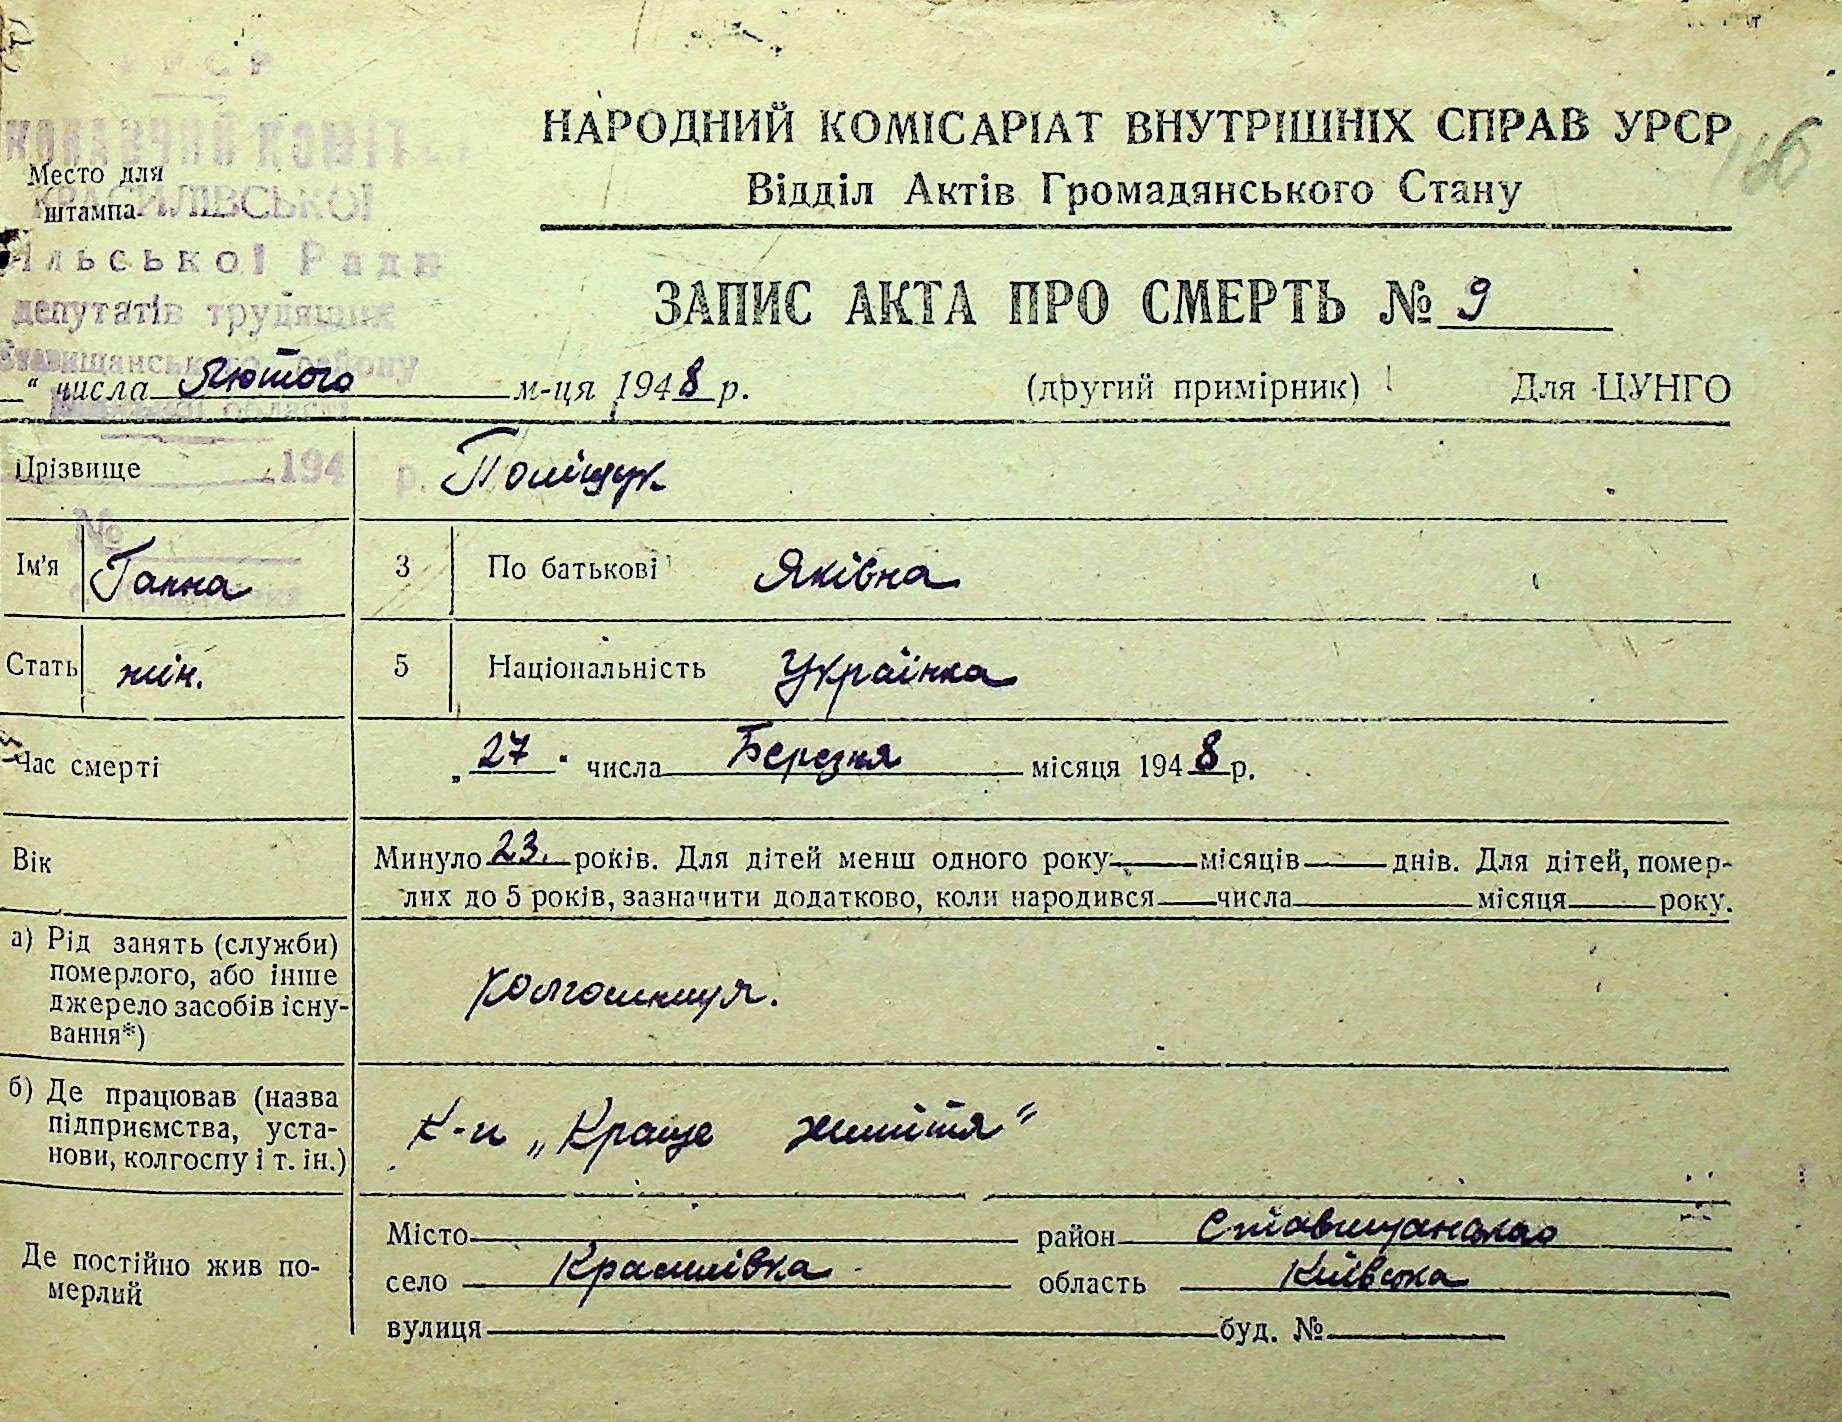 УРСР
КОНАВЧИЙ КОМІТ
Место для
штампа
КРАСИЛІВСЬКОЇ
ільської Ради
депутатів трудящих
Ставищанського району
області
194 р.
№
НАРОДНИЙ КОМІСАРІАТ ВНУТРІШНІХ СПРАВ УРСР
Відділ Актів Громадянського Стану
ЗАПИС АКТА ПРО СМЕРТЬ № 9
“ числа Лютого м-ця 1948 р. (другий примірник) Для ЦУНГО
Прізвище Поліщук
Ім'я Ганна 3 По батькові Яківна
Стать жін. 5 Національність Українка
Час смерті „27“ числа Березня місяця 1948 р.
Вік Минуло 23. років. Для дітей менш одного року місяців днів. Для дітей, помер-
лих до 5 років, зазначити додатково, коли народився числа місяця року.
а) Рід занять (служби)
померлого, або інше
джерело засобів існу-
вання*)
колгоспниця.
б) Де працював (назва
підприємства, уста-
нови, колгоспу і т. ін.)
К-п „Краще життя"
Де постійно жив по-
мерлий
Місто район Ставищансько
село Красилівка область Київська
вулиця буд. №